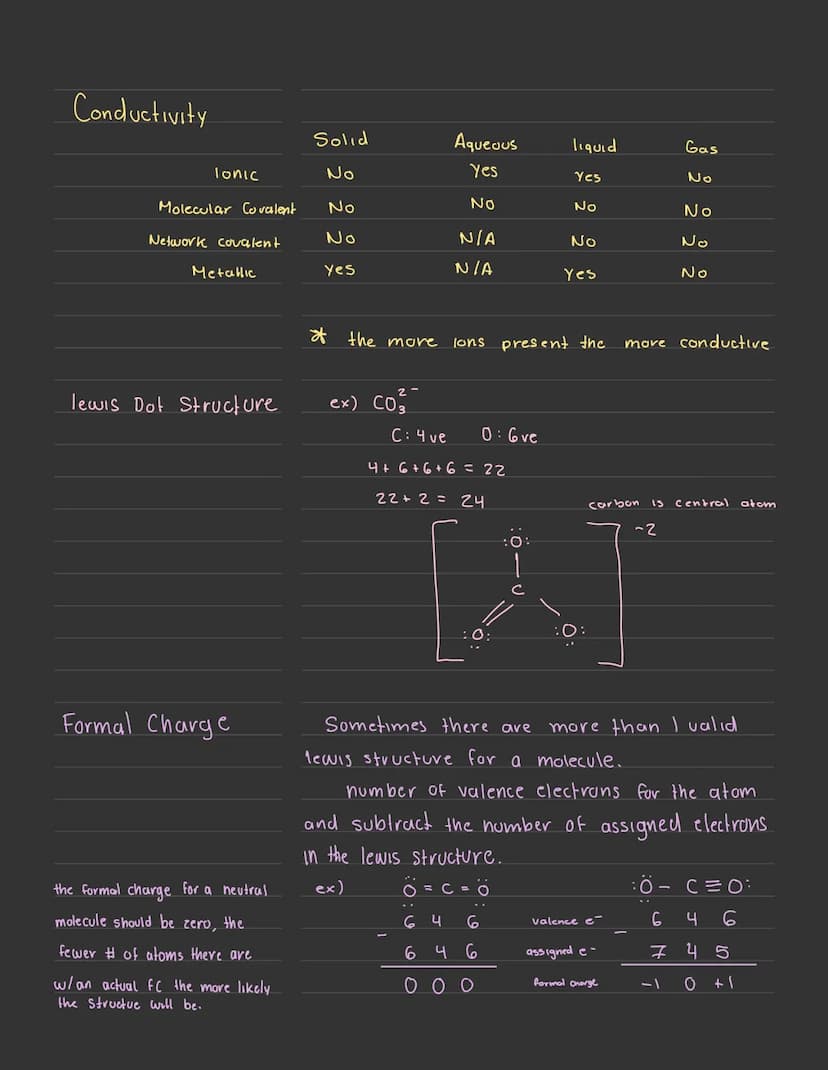 Conductivity
Solid Aqueous liquid Gas
Ionic No Yes Yes No
Molecular Covalent No No No No
Network covalent No N/A No No
Metallic Yes N/A Yes No
* the more ions present the more conductive
lewis Dot Structure ex) CO₃²⁻
C: 4ve O: 6ve
4 + 6 + 6 + 6 = 22
22 + 2 = 24
carbon is central atom
-2
O
C
O O
Formal Charge Sometimes there are more than 1 valid
lewis structure for a molecule.
number of valence electrons for the atom
and subtract the number of assigned electrons
in the lewis structure.
the formal charge for a neutral
molecule should be zero, the
fewer # of atoms there are
w/an actual FC the more likely
the Structue will be.
ex) Ö = C = Ö :Ö - C ≡ O:
6 4 6 valence e⁻ 6 4 6
- 6 4 6 assigned e- - 7 4 5
0 0 0 formal charge -1 0 +1